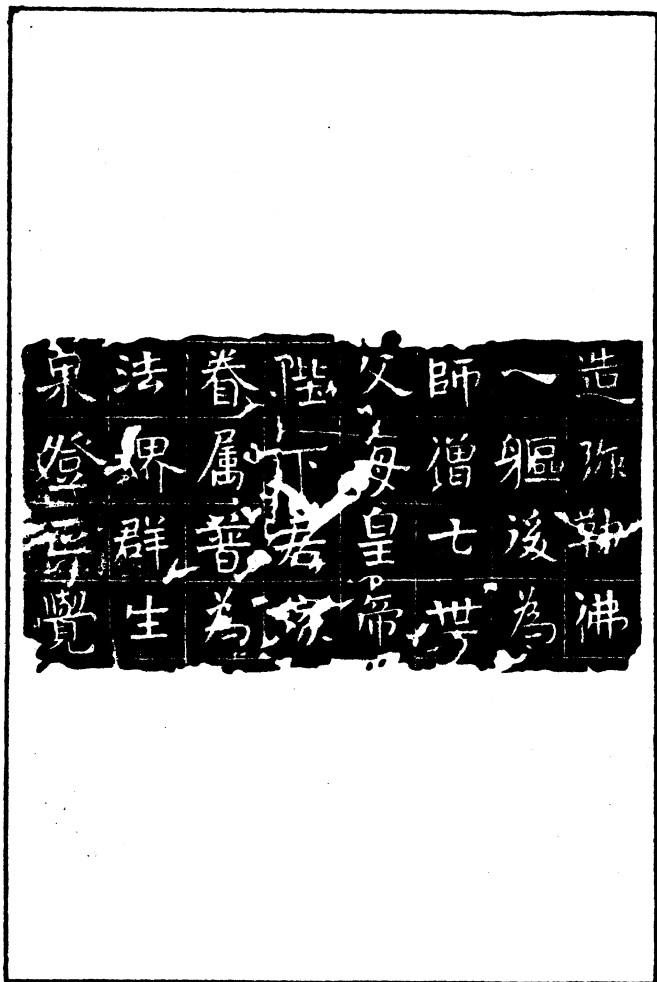 造弥勒佛
一軀後為
師僧七世
父母皇帝
陛下君
眷属普為
法界群生
登正覺